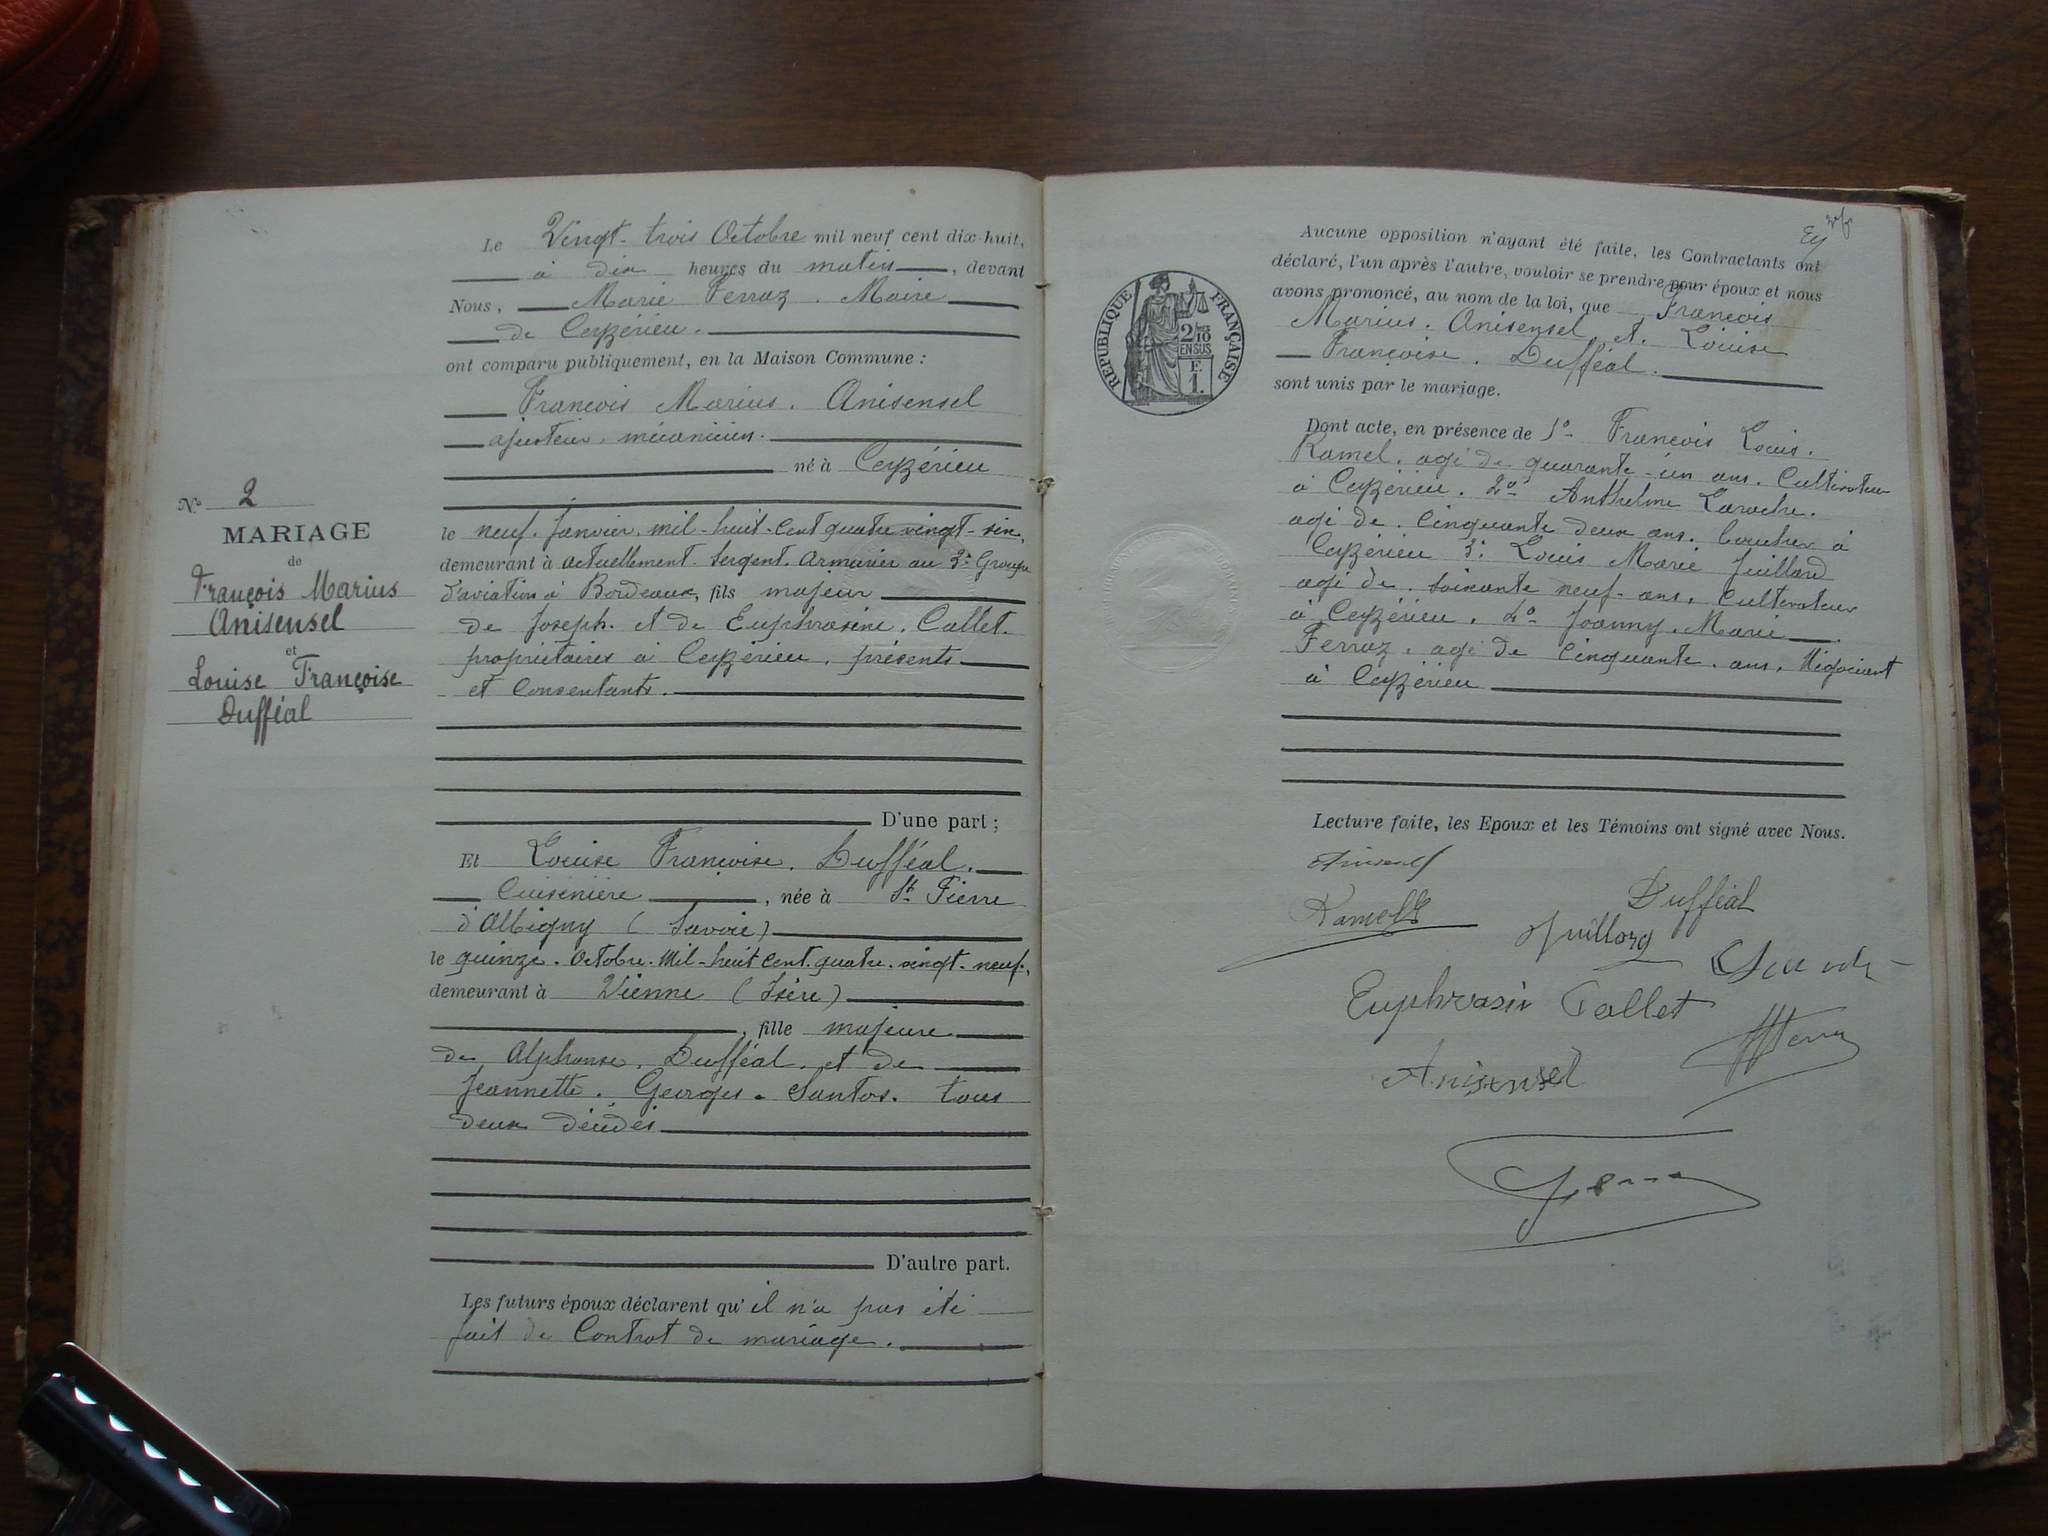 Le Vingt-trois Octobre mil neuf cent dix-huit,
à dix heures du matin, devant
Nous, Marie Ferraz. Maire
de Ceyzérieu.
ont comparu publiquement, en la Maison Commune :
François Marius. Anisensel
ajusteur. mécanicien.
né à Ceyzérieu
le neuf. Janvier. mil-huit-cent quatre vingt-six,
demeurant à actuellement. Sergent. Armurier au 3e Groupe
d'aviation à Bordeaux, fils majeur
de Joseph. et de Euphrasine. Callet.
propriétaires à Ceyzérieu. présents
et consentants.
D'une part ;
N° 2
MARIAGE
de
François Marius
Anisensel
et
Louise Françoise
Dufféal
Et Louise Françoise. Dufféal.
Cuisinière, née à St. Pierre
d'Albigny (Savoie)
le quinze. Octobre. Mil-huit cent. quatre. vingt-neuf.,
demeurant à Vienne (Isère)
, fille majeure
de Alphonse. Dufféal. et de
Jeannette. Georges. Santos. tous
deux décédés
D'autre part.
Les futurs époux déclarent qu'il n'a pas été
fait de Contrat de mariage.
Aucune opposition n'ayant été faite, les Contractants ont
déclaré, l'un après l'autre, vouloir se prendre pour époux et nous
avons prononcé, au nom de la loi, que François
Marius. Anisensel et. Louise
Françoise. Dufféal.
sont unis par le mariage.
REPUBLIQUE FRANÇAISE
2/10
EN SUS
E
1.
Dont acte, en présence de 1o- François Louis.
Ramel. agé de quarante-un ans. Cultivateur
à Ceyzérieu. 2o Anthelme Laroche.
agé de. Cinquante deux ans. boucher à
Ceyzérieu 3o Louis Marie Juillard
agé de. soixante neuf-ans. Cultivateur
à Ceyzérieu. 4o Joanny. Marie
Ferraz. agé de Cinquante. ans. Négociant
à Ceyzérieu
Lecture faite, les Epoux et les Témoins ont signé avec Nous.
Ramel
Dufféal
Juillard
Euphrasie Callet
Anisensel